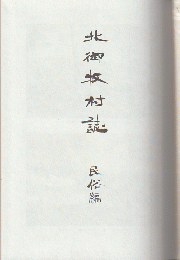 北御牧村誌
民俗編